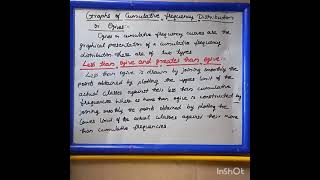 Graphs of Cumulative frequency Distribution
or Ogives:-
Ogives or cumulative frequency curves are the
graphical presentation of a cumulative frequency
distribution there are of two types
Less than ogive and greater than ogive:
Less than ogive is drawn by joining smoothly the
points obtained by plotting the upper limit of the
actual classes against their less than cumulative
frequencies while as more than ogive is constructed by
joining smoothly the points obtained by plotting the
lower limit of the actual classes against their more
than cumulative frequencies.
InShOt